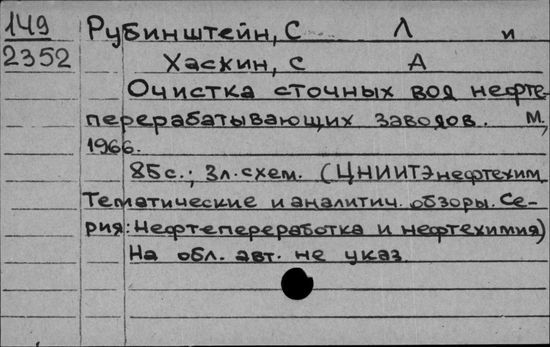 149 Рубинштейн, С Л и
2352 Хаскин, С А
Очистка сточных вод нефте-
перерабатывающих заводов. М.,
1966.
85с.; 3л.схем. (ЦНИИТЭнефтехим.
Тематические и аналитич. обзоры. Се-
рия: Нефтепереработка и нефтехимия)
На обл. авт. не указ.